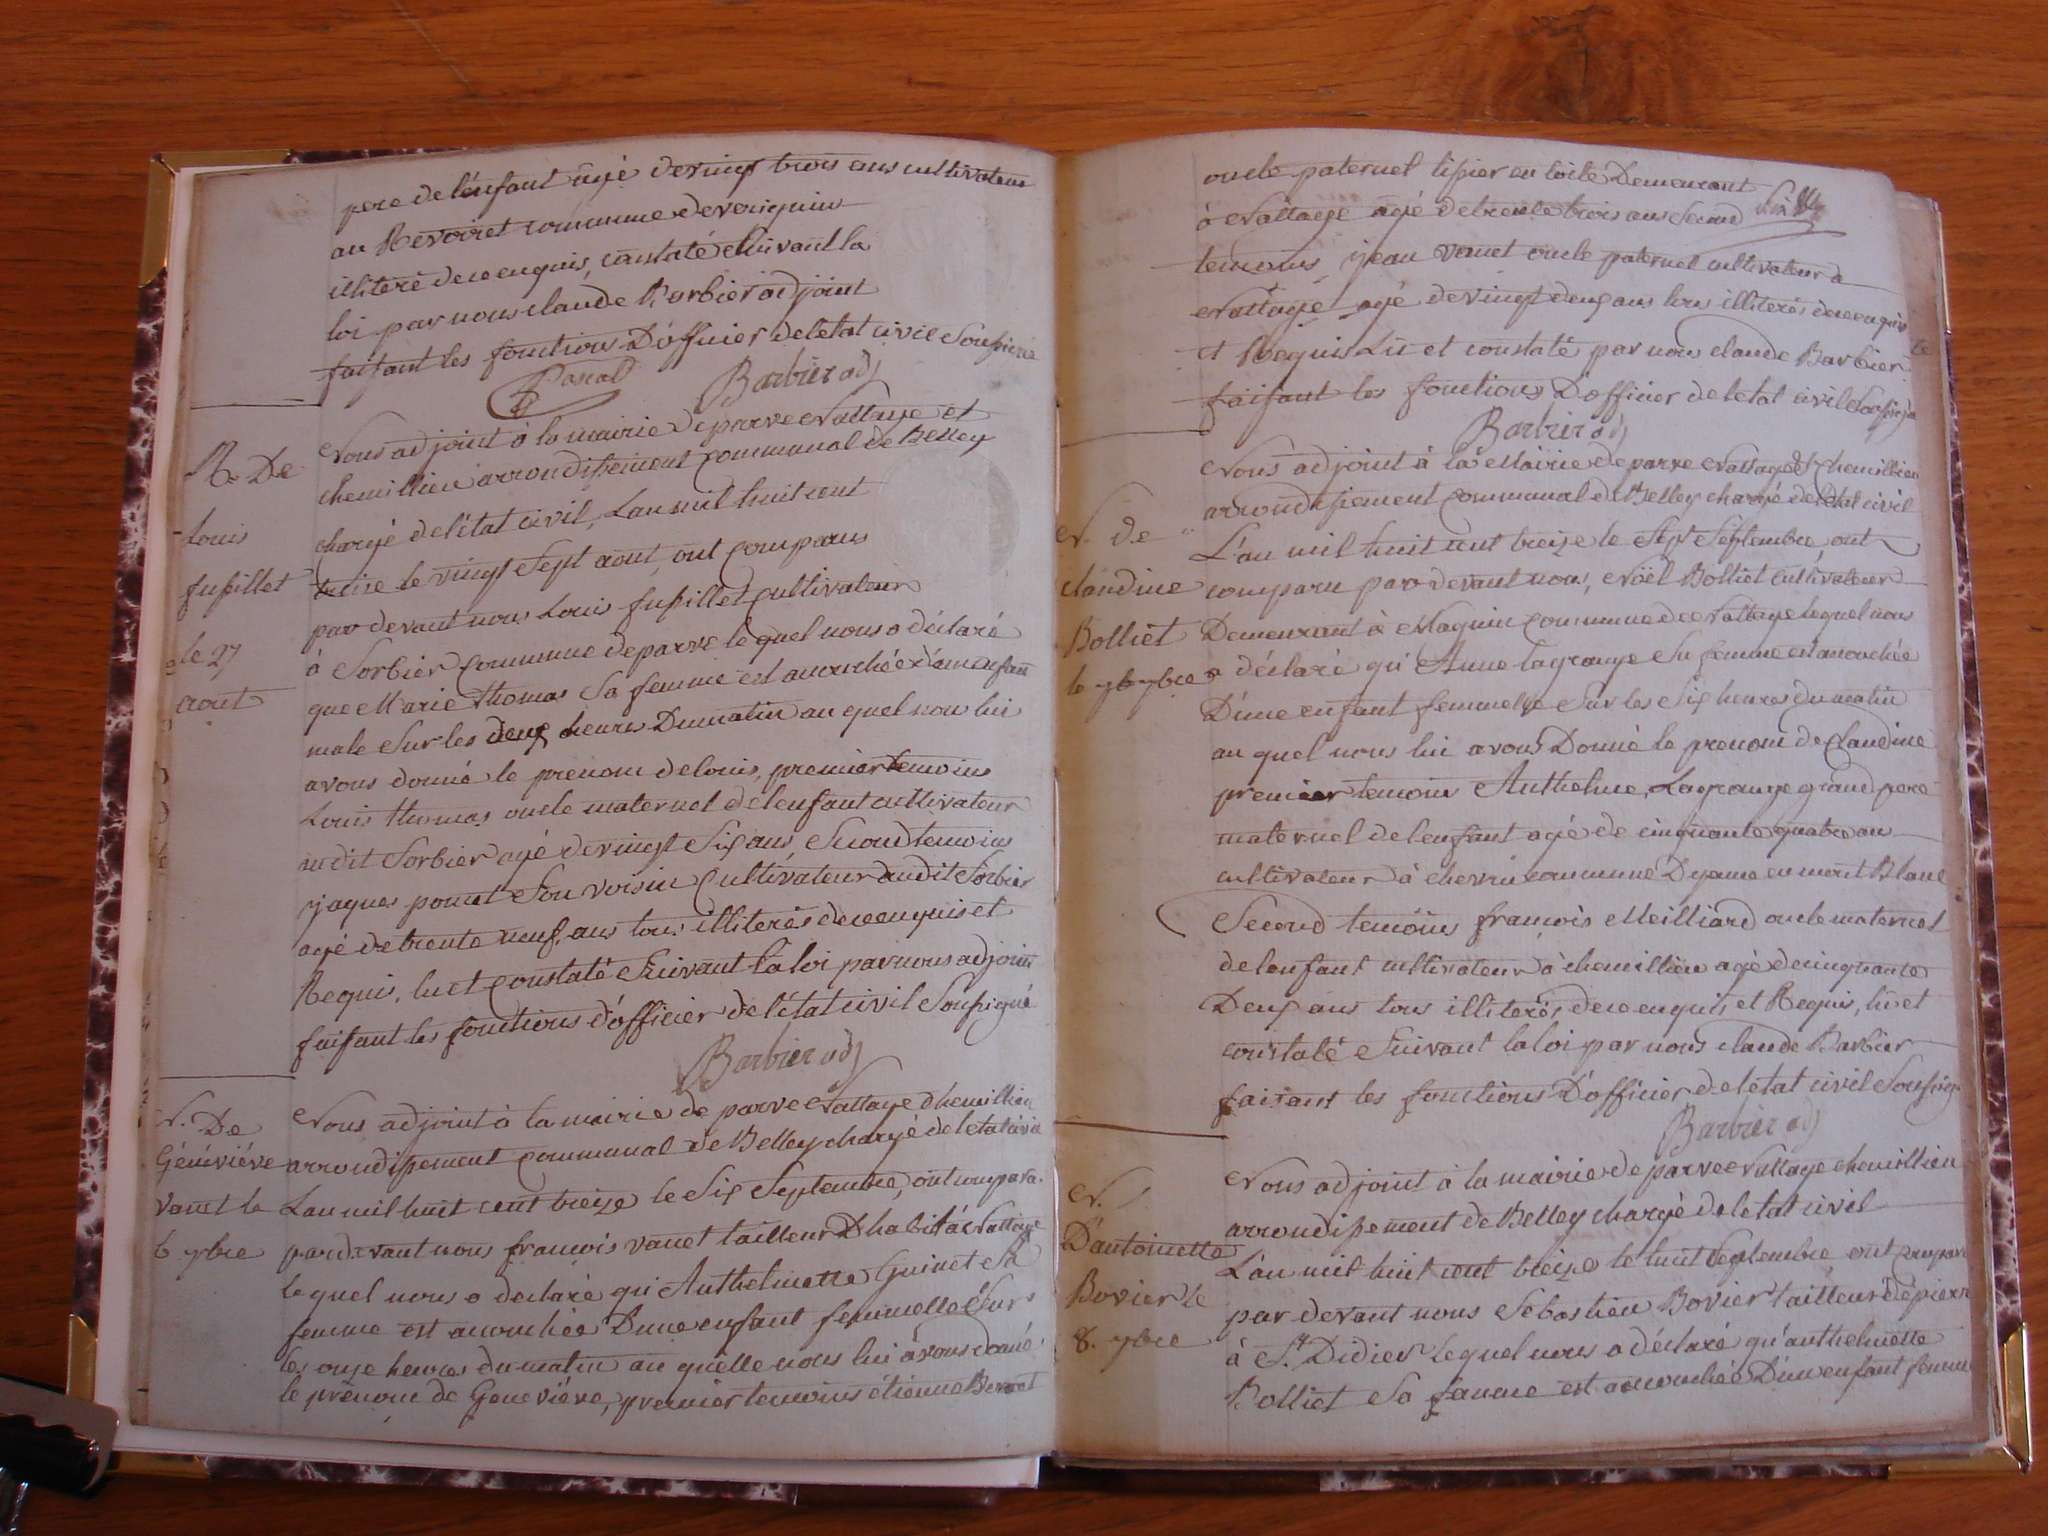 pere de lenfant agé de vingt trois ans cultivateur
au Revoiret commune de vongnin
illiteré de ce enquis, constaté Suivant la
loi par nous claude Barbier adjoint
faisant les fonctions D'officier de letat civil Soussigné
Pascal Barbier adj
R. De
Louis
fussillet
le 27
aout
Nous adjoint à la mairie de parve Nattage et
chemillieu arrondissement communal de Belley
chargé de létat civil, Lan mil huit cent
treise le vingt Sept aout, ont comparus
par devant nous Louis fussillet cultivateur
à Sorbier commune de parve lequel nous a déclaré
que Marie Thomas Sa femme est accouchée d'un enfant
male Sur les deux heures Du matin au quel nous lui
avous donné le prenom de louis, premier temoins
Louis thomas oncle maternel de lenfant cultivateur
au dit Sorbier agé de vingt Six ans Second temoins
jaques ponet Son voisin Cultivateur audit Sorbier
agé de trente neuf ans tous illiterés de ce enquis et
Requis, lu et constaté Suivant la loi par nous adjoint
faisant les fonctions d'officier de l'état civil Soussigné
Barbier adj
N. De
Généviéve
vanet le
6 7bre
Nous adjoint à la mairie de parve Nattage Chemillieu
arrondissement communal de Belley chargé de letat civil
Lan mil huit cent treize le Six Septembre, ont compara.
par devant nous francois vanet tailleur D'habit à Nattage
lequel nous a declaré qu'Anthelmette Guinet Sa
femme est accouchée D'une enfant femmelle Sur
les onze heures du matin au quelle nous lui avous donné
le prénom de Geneviéve, premier temoins étienne Benoit
oncle paternel tissier en toile Demeurant
à Nattage agé de trente trois ans Second
temoins jean vanet oncle paternel cultivateur a
Nattage agé de vingt deux ans tous illiterés de ce enquis
et Requis Lu et constaté par nous claude Barbier
faisant les fonctions D'officier de letat civil Soussigné
Barbier adj
N. de
claudine
Bolliet
le 7 7bre
Nous adjoint à la Mairie de parve Nattage et chemillieu
arrondissement communal de Belley chargé de letat civil
L'an mil huit cent treize le Sept Septembre, ont
comparu par devant nous, Noël Bolliet cultivateur
Demeurant à Magnin commune de Nattage lequel nous
a déclaré qu'Anne lagrange Sa femme est accouchée
D'une enfant femmelle Sur les Six heures du matin
au quel nous lui avous Donné le prenom de Claudine
premier temoin Anthelme Lagrange grand pere
maternel de lenfant agé de cinquante quatre an
cultivateur à chevru commune D'yenne en mont Blanc
Second temoins francois Meilliard oncle maternel
de lenfant cultivateur à chemillieu agé de cinquante
Deux ans tous illiterés de ce enquis et Requis, lu et
constaté Suivant la loi par nous claude Barbier
faisant les fonctions D'officier de letat civil Soussigné
Barbier adj
N.
D'antoinette
Bovier le
8. 7bre
Nous adjoint à la mairie de parve Nattage chemillieu
arrondissement de Belley chargé de letat civil
L'an mil huit cent treize le huit Septembre ont comparu
par devant nous Sebastien Bovier tailleur de pierre
à St Didier lequel nous a déclaré qu'anthelmette
Bolliet Sa femme est accouchée D'une enfant femme